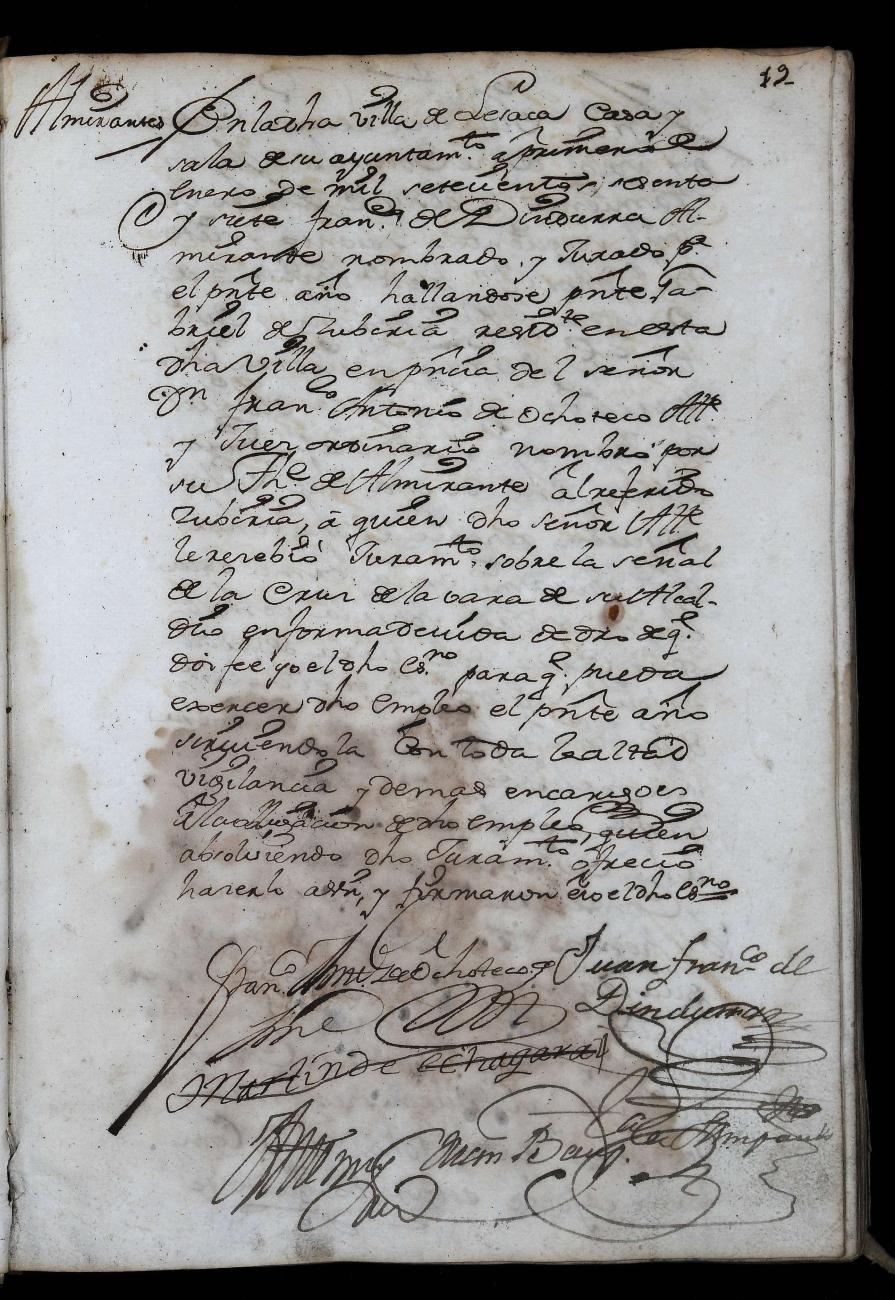 12
Almirantes
En la dha villa de Lesaca Casa y
sala de su ayuntam.to a primero de
Enero de mil setecientos, sesenta
y siete fran.co de Dindurra Al-
mirante nombrado, y Jurado p.a
el pnte año hallandose pnte Ga-
briel de Zubiria resid.te en esta
dha Villa, en pncia del señor
Dn fran.co Antonio de Ochoteco Alle
y Juez ordinario nombro por
su The de Almirante al referido
Zubiria, a quien dho señor Alle
le recebió Juram.to sobre la señal
de la Cruz de la vara de su Alcal-
dio en forma devida de dro de q.e
doi fee yo el dho Es.no para q.e pueda
exercer dho empleo el pnte año
sirviendola Con toda lealtad
vigilancia y demas encargos
de dho empleo, quien
absolviendo dho Juram.to ofreció
hacerlo assi, y firmaron é yo el dho Es.no
Fran.co Ant.o de Ochoteco
Juan fran.co de
Dindurra
Martin de Echagaral
Ante mi
Juan Bau.